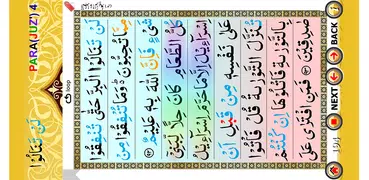 PARA(JUZ') 4
لَنْ تَنَالُوا
لَنْ تَنَالُوا الْبِرَّ حَتّٰى تُنْفِقُوْا
مِمَّا تُحِبُّوْنَ ؕ وَمَا تُنْفِقُوْا مِنْ
شَیْءٍ فَاِنَّ اللّٰهَ بِهٖ عَلِيْمٌ ﴿۹۲﴾
كُلُّ الطَّعَامِ كَانَ حِلًّا لِّبَنِیْۤ
اِسْرَآءِيْلَ اِلَّا مَا حَرَّمَ اِسْرَآءِيْلُ
عَلٰى نَفْسِهٖ مِنْ قَبْلِ اَنْ
تُنَزَّلَ التَّوْرٰىةُ ؕ قُلْ فَاْتُوْا
بِالتَّوْرٰىةِ فَاتْلُوْهَاۤ اِنْ كُنْتُمْ
صٰدِقِيْنَ ﴿۹۳﴾ فَمَنِ افْتَرٰى عَلَى
NEXT
BACK